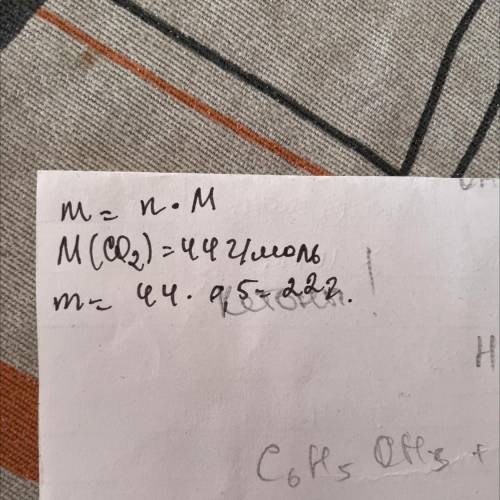 m = n · M
M(CO2) = 44 г/моль
m = 44 · 0,5 = 22 г.
H
C6H5 CH3 +